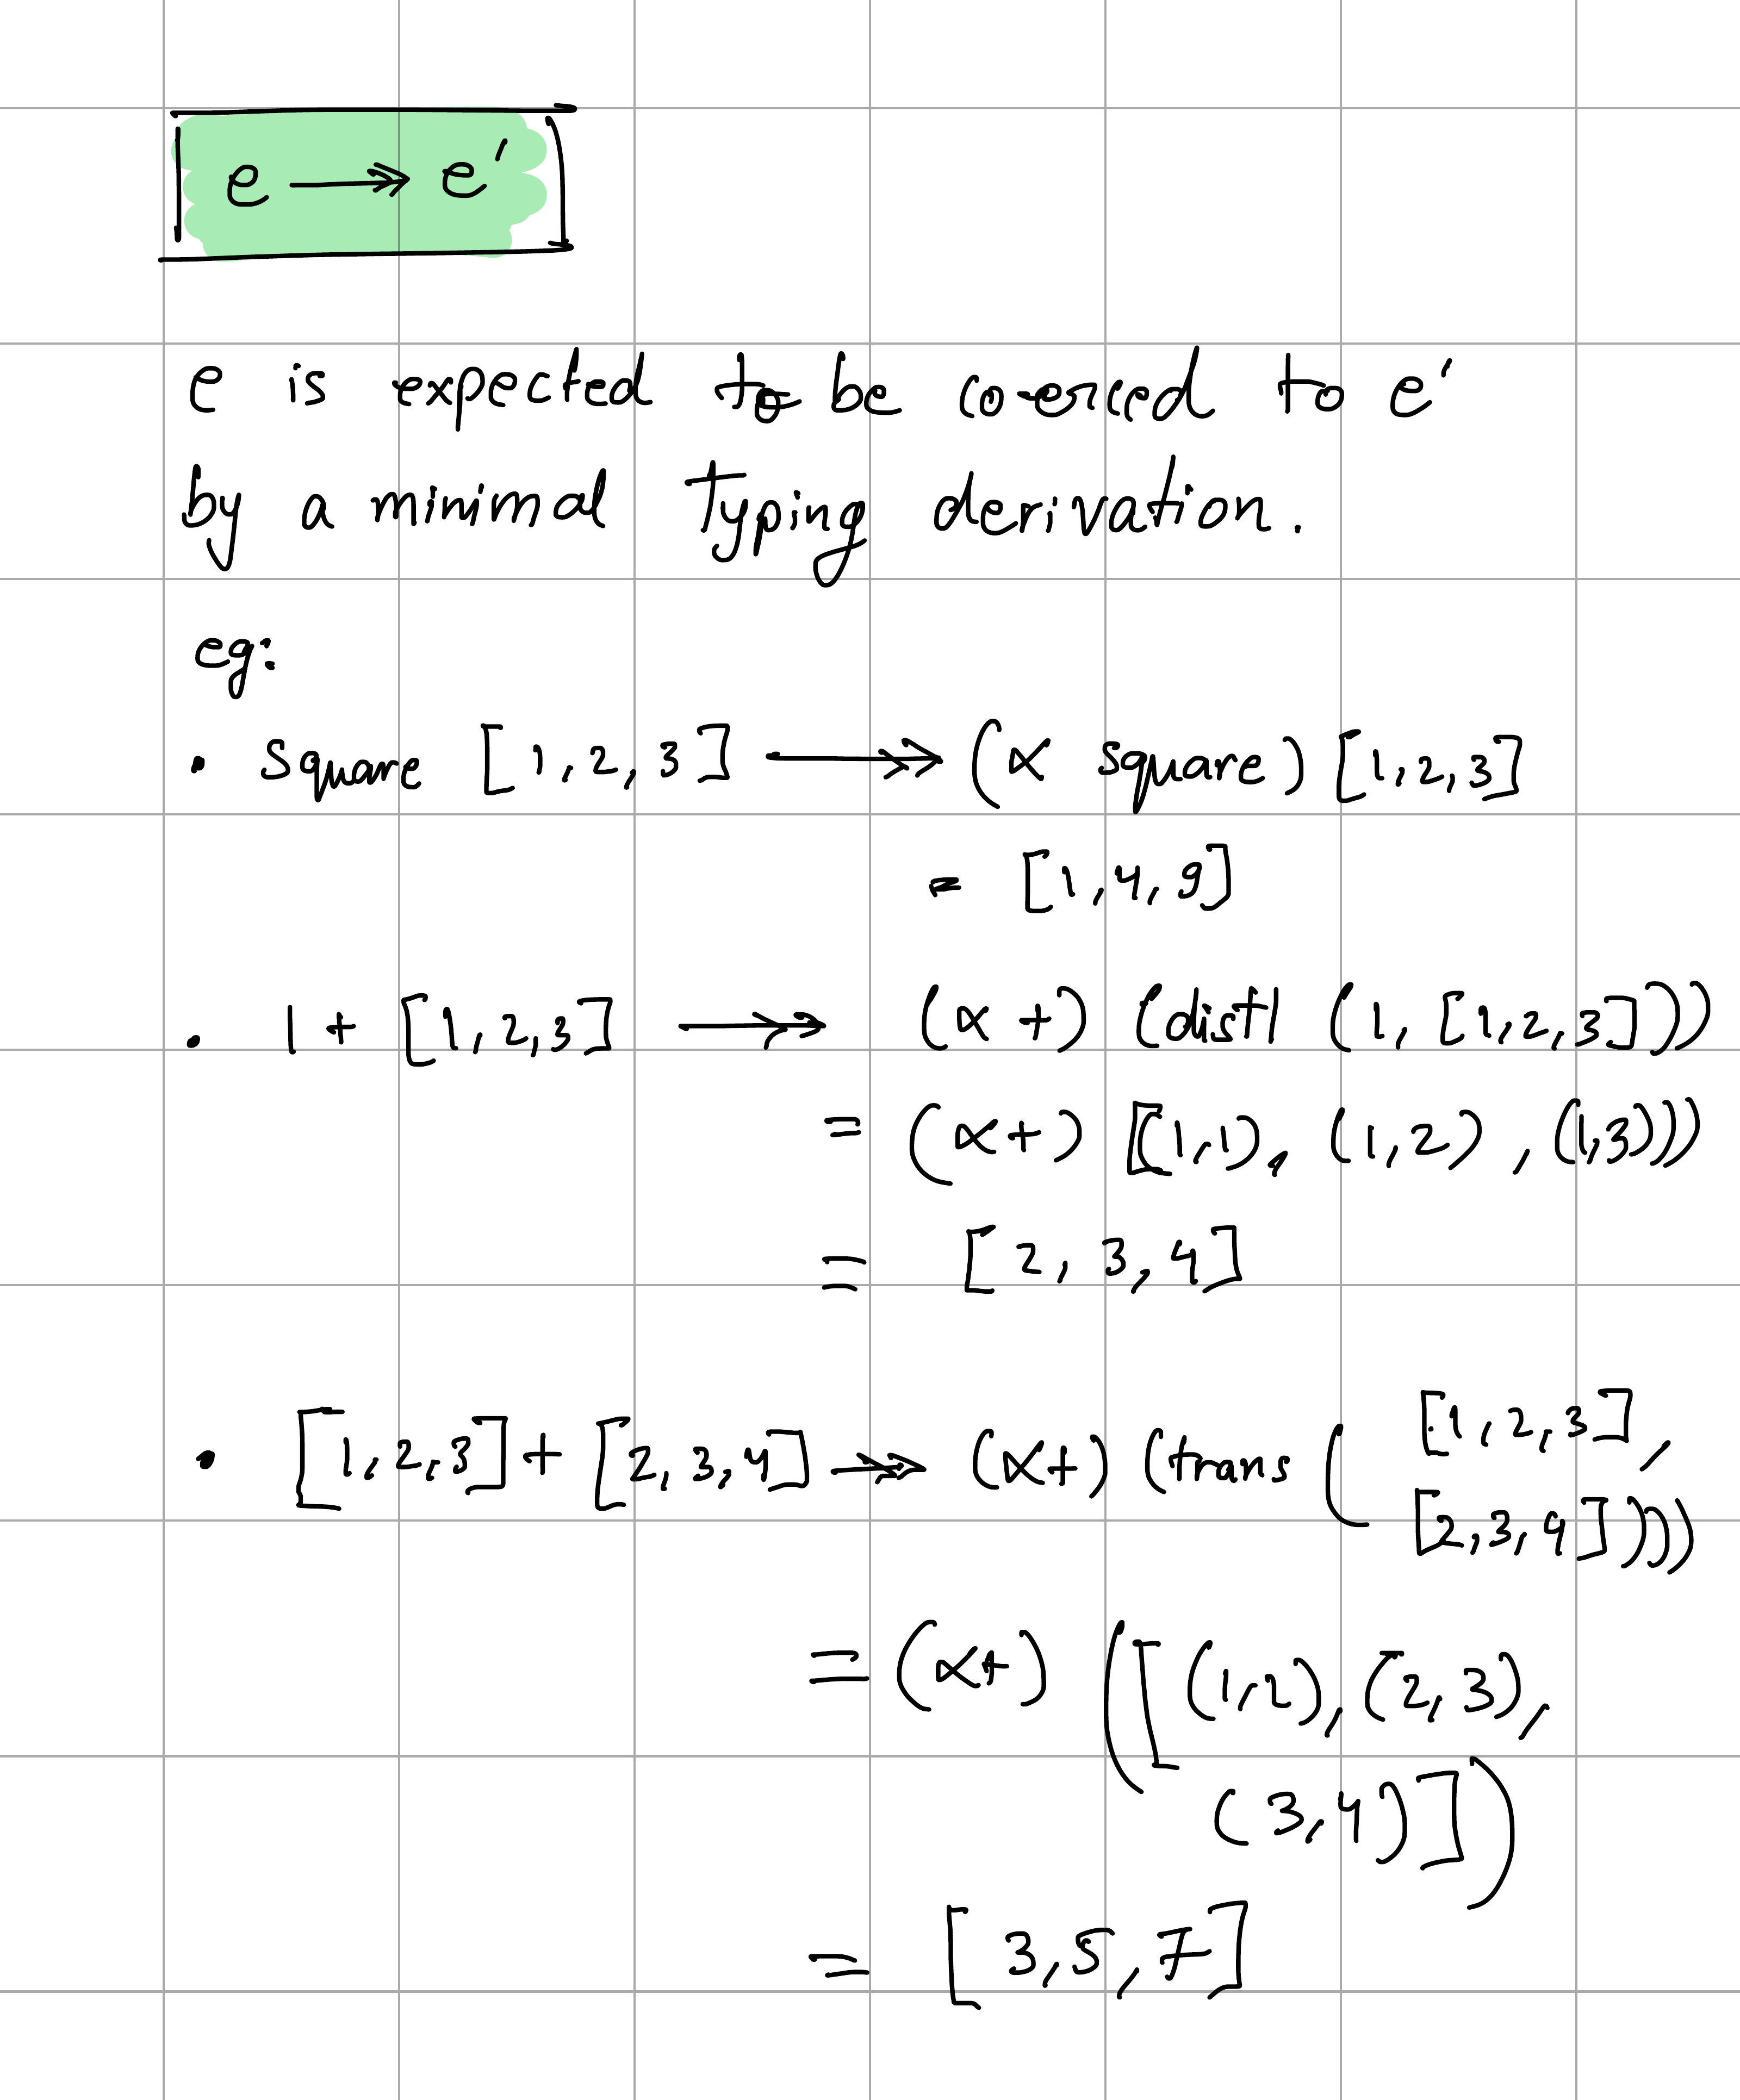 e ↠ e′
e is expected to be coerced to e′
by a minimal typing derivation.
eg:
• square [1,2,3] ↠ (α square) [1,2,3]
= [1,4,9]
• 1 + [1,2,3] ↠ (α +) (distl (1, [1,2,3]))
= (α+) [(1,1), (1,2), (1,3)))
= [2,3,4]
• [1,2,3] + [2,3,4] ↠ (α+) (trans ([1,2,3],
[2,3,4])))
= (α+) ([(1,2), (2,3),
(3,4)])
= [3,5,7]